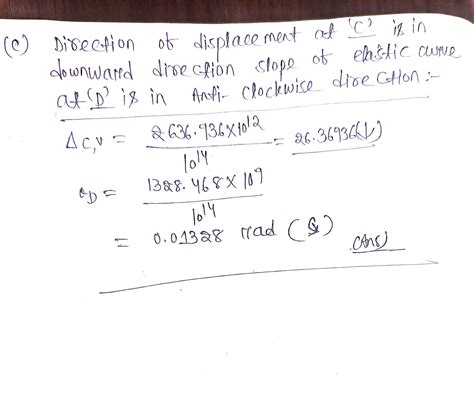 (c) Direction of displacement at 'C' is in
downward direction slope of elastic curve
at 'D' is in Anti-clockwise direction:-
Δc,v = 2636.936×10¹² / 10¹⁴ = 26.36936(↓)
θD = 1328.468×10⁹ / 10¹⁴
= 0.01328 rad (↺)
(Ans)